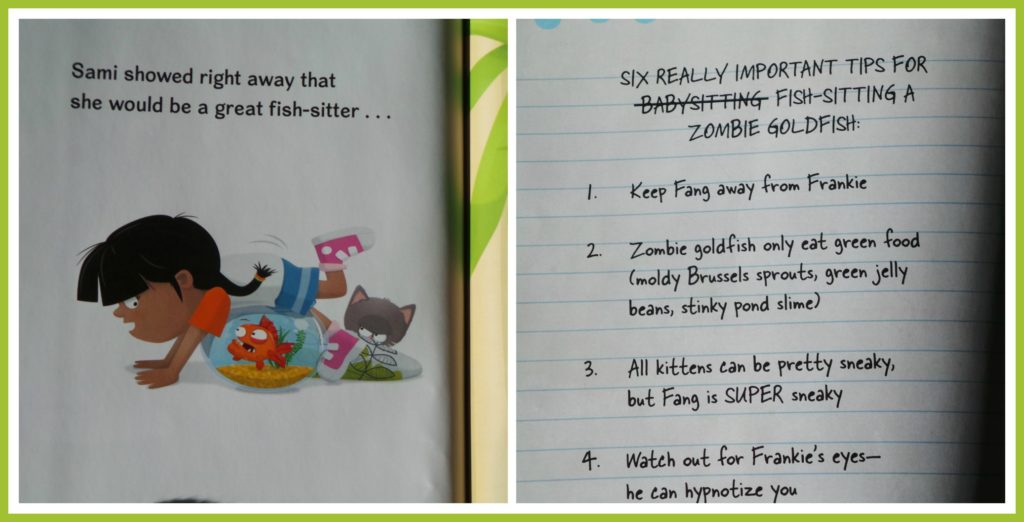 Sami showed right away that
she would be a great fish-sitter . . .
SIX REALLY IMPORTANT TIPS FOR
BABYSITTING FISH-SITTING A
ZOMBIE GOLDFISH:
1. Keep Fang away from Frankie
2. Zombie goldfish only eat green food
(moldy Brussels sprouts, green jelly
beans, stinky pond slime)
3. All kittens can be pretty sneaky,
but Fang is SUPER sneaky
4. Watch out for Frankie's eyes—
he can hypnotize you